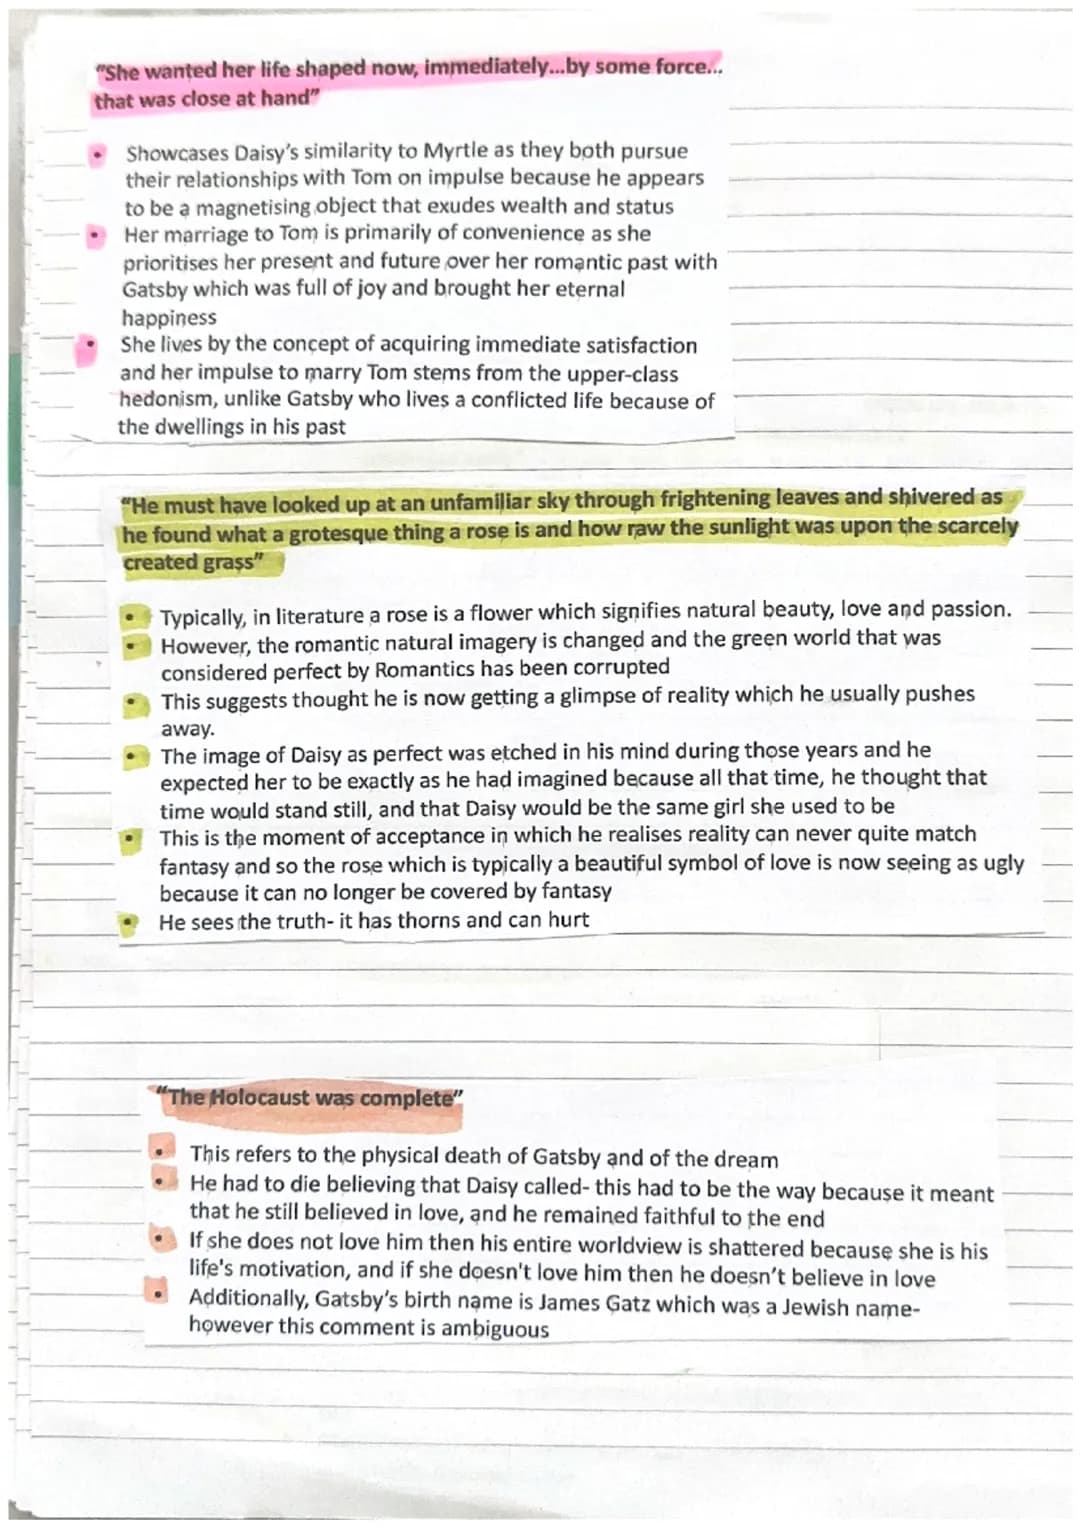 "She wanted her life shaped now, immediately...by some force...
that was close at hand"
• Showcases Daisy's similarity to Myrtle as they both pursue
their relationships with Tom on impulse because he appears
to be a magnetising object that exudes wealth and status
• Her marriage to Tom is primarily of convenience as she
prioritises her present and future over her romantic past with
Gatsby which was full of joy and brought her eternal
happiness
• She lives by the concept of acquiring immediate satisfaction
and her impulse to marry Tom stems from the upper-class
hedonism, unlike Gatsby who lives a conflicted life because of
the dwellings in his past
"He must have looked up at an unfamiliar sky through frightening leaves and shivered as
he found what a grotesque thing a rose is and how raw the sunlight was upon the scarcely
created grass"
• Typically, in literature a rose is a flower which signifies natural beauty, love and passion.
• However, the romantic natural imagery is changed and the green world that was
considered perfect by Romantics has been corrupted
• This suggests thought he is now getting a glimpse of reality which he usually pushes
away.
• The image of Daisy as perfect was etched in his mind during those years and he
expected her to be exactly as he had imagined because all that time, he thought that
time would stand still, and that Daisy would be the same girl she used to be
• This is the moment of acceptance in which he realises reality can never quite match
fantasy and so the rose which is typically a beautiful symbol of love is now seeing as ugly
because it can no longer be covered by fantasy
• He sees the truth- it has thorns and can hurt
"The Holocaust was complete"
• This refers to the physical death of Gatsby and of the dream
• He had to die believing that Daisy called- this had to be the way because it meant
that he still believed in love, and he remained faithful to the end
• If she does not love him then his entire worldview is shattered because she is his
life's motivation, and if she doesn't love him then he doesn't believe in love
• Additionally, Gatsby's birth name is James Gatz which was a Jewish name-
however this comment is ambiguous